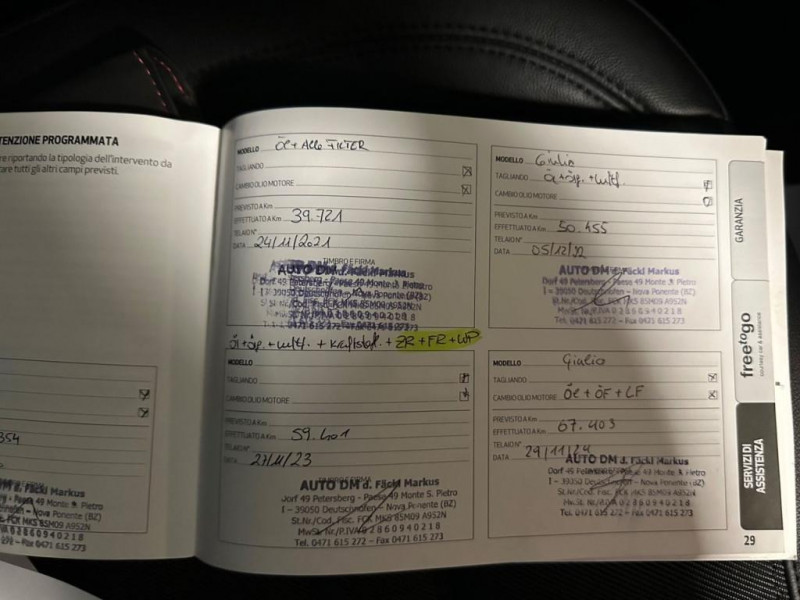 TENZIONE PROGRAMMATA
re riportando la tipologia dell'intervento da
tare tutti gli altri campi previsti.
354
MkS 85M09 A952N
02860940218
Fax 0471 615 273
MODELLO Öl + Alle FILTER
TAGLIANDO
CAMBIO OLIO MOTORE
PREVISTO A Km
EFFETTUATO A Km 39.721
TELAIO N°
DATA 24/11/2021
TIMBRO E FIRMA
AUTO DM d. Fäckl Markus
Dorf 49 Petersberg - Paese 49 Monte S. Pietro
I - 39050 Deutschnofen - Nova Ponente (BZ)
02860940218
Tel. 0471 615 272 - Fax 0471 615 273
+ ZR + FR + WP
MODELLO
TAGLIANDO
CAMBIO OLIO MOTORE
PREVISTO A Km
EFFETTUATO A Km 59.401
TELAIO N°
DATA 27/11/23
TIMBRO E FIRMA
AUTO DM d. Fäckl Markus
Dorf 49 Petersberg - Paese 49 Monte S. Pietro
I - 39050 Deutschnofen - Nova Ponente (BZ)
St.Nr./Cod. Fisc. FCK MKS 85M09 A952N
MwSt. Nr./P.IVA 02860940218
Tel. 0471 615 272 - Fax 0471 615 273
MODELLO Giulia
TAGLIANDO
CAMBIO OLIO MOTORE
PREVISTO A Km
EFFETTUATO A Km 50.455
TELAIO N°
DATA 05/12/22
AUTO DM d. Fäckl Markus
Dorf 49 Petersberg - Paese 49 Monte S. Pietro
I - 39050 Deutschnofen - Nova Ponente (BZ)
St.Nr./Cod. Fisc. FCK MKS 85M09 A952N
MwSt. Nr./P.IVA 02860940218
Tel. 0471 615 272 - Fax 0471 615 273
MODELLO Giulia
TAGLIANDO
CAMBIO OLIO MOTORE Öl + ÖF + LF
PREVISTO A Km
EFFETTUATO A Km 67.403
TELAIO N°
DATA 29/11/24
AUTO DM d. Fäckl Markus
Dorf 49 Petersberg - Paese 49 Monte S. Pietro
I - 39050 Deutschnofen - Nova Ponente (BZ)
St.Nr./Cod. Fisc. FCK MKS 85M09 A952N
MwSt. Nr./P.IVA 02860940218
Tel. 0471 615 272 - Fax 0471 615 273
GARANZIA
freetogo
courtesy car & assistance
SERVIZI DI
ASSISTENZA
29